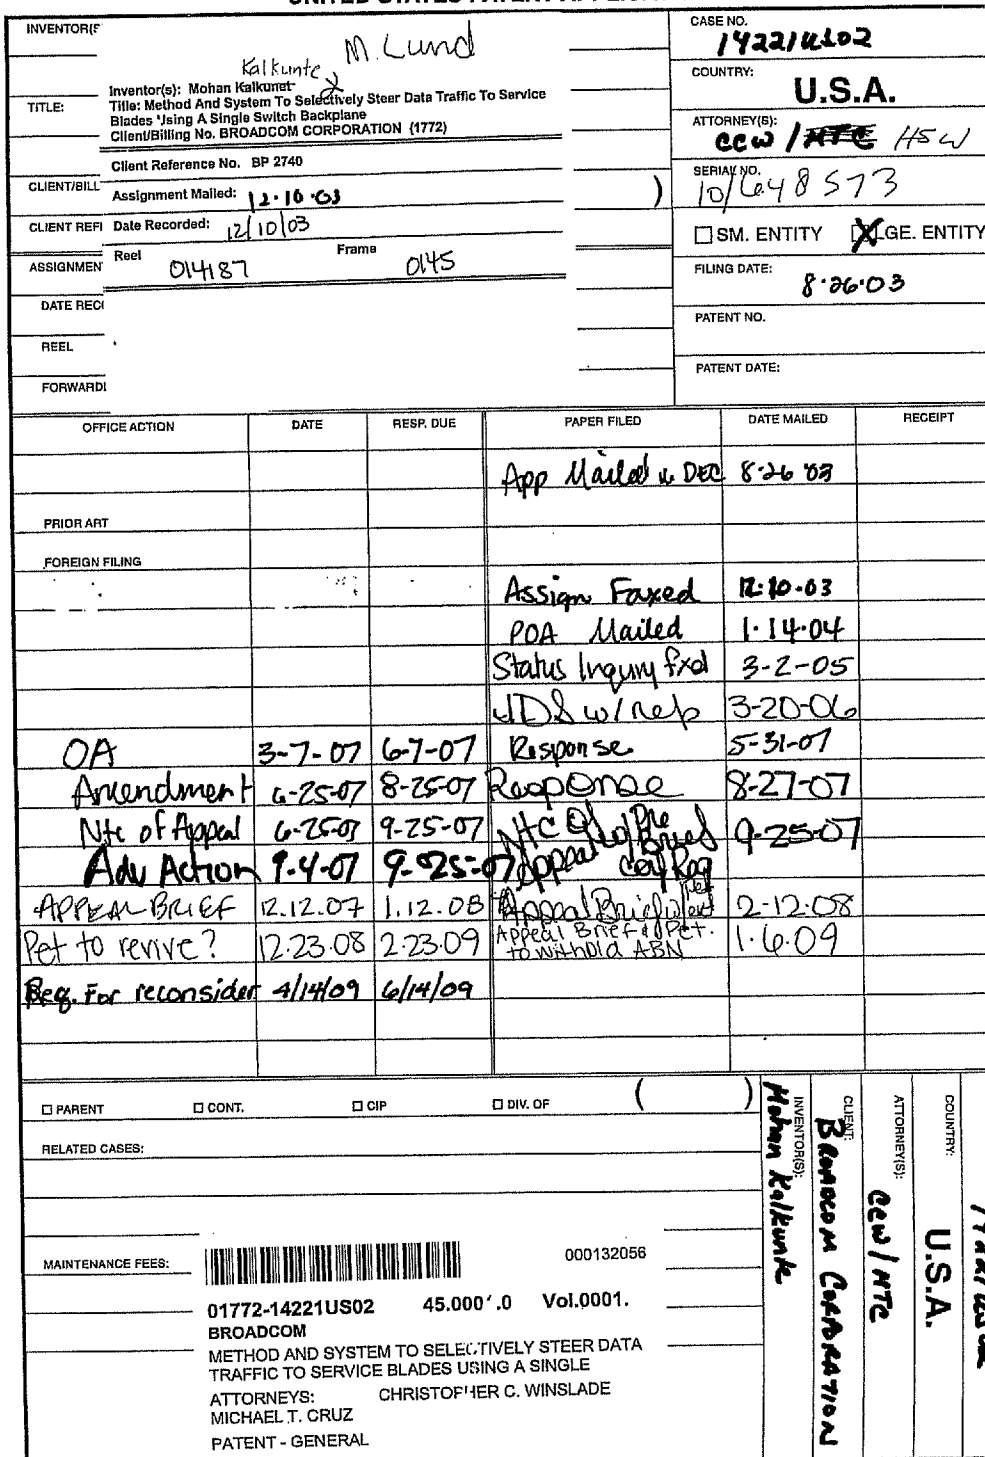 INVENTOR(S
M. Lund
Kalkunte
Inventor(s): Mohan Kalkunet
TITLE:
Title: Method And System To Selectively Steer Data Traffic To Service
Blades Using A Single Switch Backplane
Client/Billing No. BROADCOM CORPORATION (1772)
Client Reference No. BP 2740
CLIENT/BILL
Assignment Mailed: 12·10·03
)
CLIENT REFI
Date Recorded: 12/10/03
ASSIGNMEN
Reel 014187 Frame 0145
DATE REC
REEL
FORWARDI
CASE NO.
14221US02
COUNTRY:
U.S.A.
ATTORNEY(S):
CCW / MTC HSW
SERIAL NO.
10/648573
☐ SM. ENTITY ☒ LGE. ENTITY
FILING DATE:
8·26·03
PATENT NO.
PATENT DATE:
OFFICE ACTION DATE RESP. DUE PAPER FILED DATE MAILED RECEIPT
App Mailed w DEC 8·26 03
PRIOR ART
FOREIGN FILING
Assign Faxed 12·10·03
POA Mailed 1·14·04
Status Inquiry fxd 3-2-05
IDS w/ refs 3-20-06
OA 3-7-07 6-7-07 Response 5-31-07
Amendment 6-25-07 8-25-07 Response 8-27-07
Ntc of Appeal 6-25-07 9-25-07 Ntc of Appeal w/ Pre Brief Conf Req 9-25-07
Adv Action 9-4-07 9-25-07
APPEAL BRIEF 12.12.07 1.12.08 Appeal Brief w/ ext Pet 2-12-08
Pet to revive? 12.23.08 2.23.09 Appeal Brief & Pet. to withold ABN 1.6.09
Req. For reconsider 4/14/09 6/14/09
☐ PARENT ☐ CONT. ☐ CIP ☐ DIV. OF ( )
RELATED CASES:
MAINTENANCE FEES:
000132056
01772-14221US02 45.000'.0 Vol.0001.
BROADCOM
METHOD AND SYSTEM TO SELECTIVELY STEER DATA
TRAFFIC TO SERVICE BLADES USING A SINGLE
ATTORNEYS: CHRISTOPHER C. WINSLADE
MICHAEL T. CRUZ
PATENT - GENERAL
INVENTOR(S):
Mohan Kalkunte
CLIENT:
BROADCOM CORPORATION
ATTORNEY(S):
CCW / MTC
COUNTRY:
U.S.A.